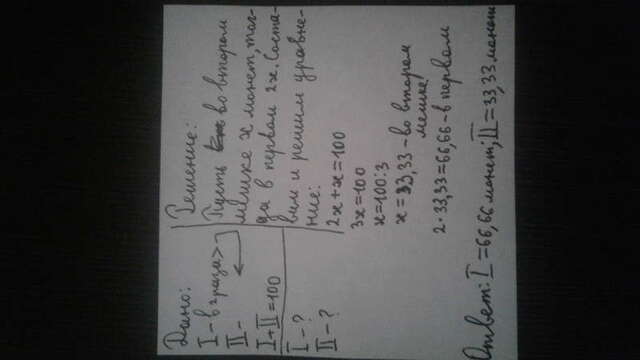 Дано:
I - в 2 раза >
II -
I + II = 100
I - ?
II - ?
Решение:
Пусть во втором
мешке x монет, тог-
да в первом 2x. Соста-
вим и решим уравне-
ние:
2x + x = 100
3x = 100
x = 100 : 3
x = 33,33 - во втором
мешке
2 · 33,33 = 66,66 - в первом
Ответ: I = 66,66 монет; II = 33,33 монет